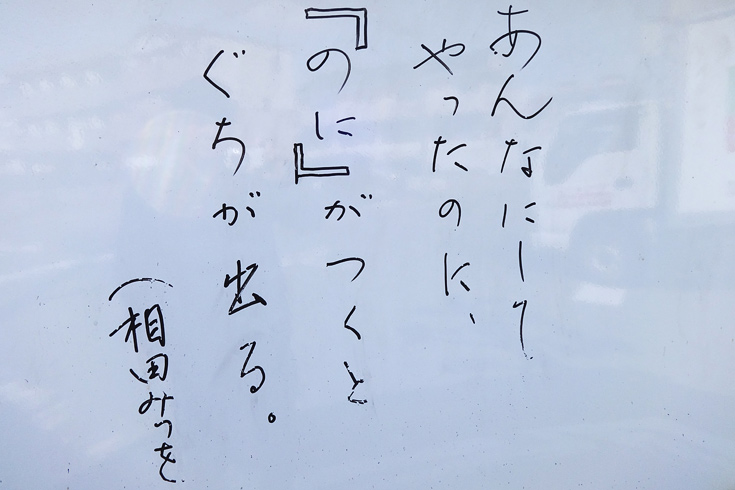 あんなにして
やったのに、
『のに』がつくと
ぐちが出る。
(相田みつを